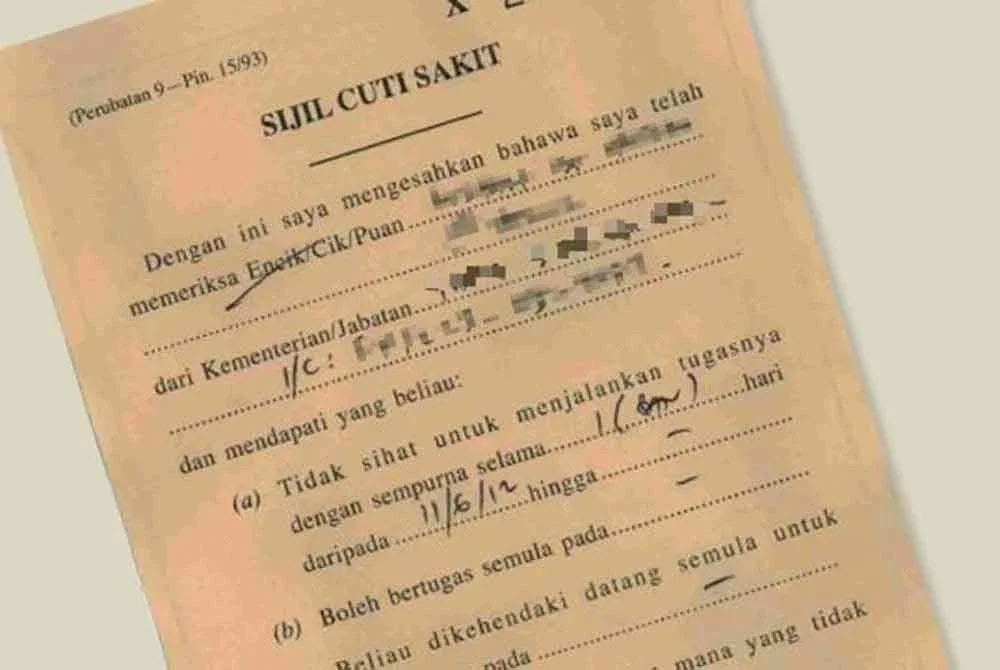 (Perubatan 9—Pin. 15/93)
SIJIL CUTI SAKIT
Dengan ini saya mengesahkan bahawa saya telah
memeriksa Encik/Cik/Puan
dari Kementerian/Jabatan
I/C:
dan mendapati yang beliau:
(a) Tidak sihat untuk menjalankan tugasnya
dengan sempurna selama 1 ( ) hari
daripada 11/6/12 hingga –
(b) Boleh bertugas semula pada –
Beliau dikehendaki datang semula untuk
pada –
mana yang tidak